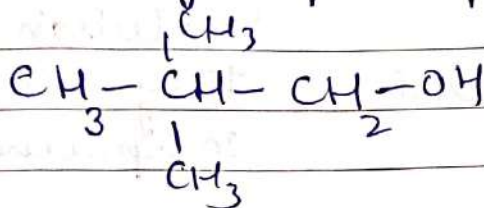 CH3
CH3 - CH - CH2 - OH
CH3